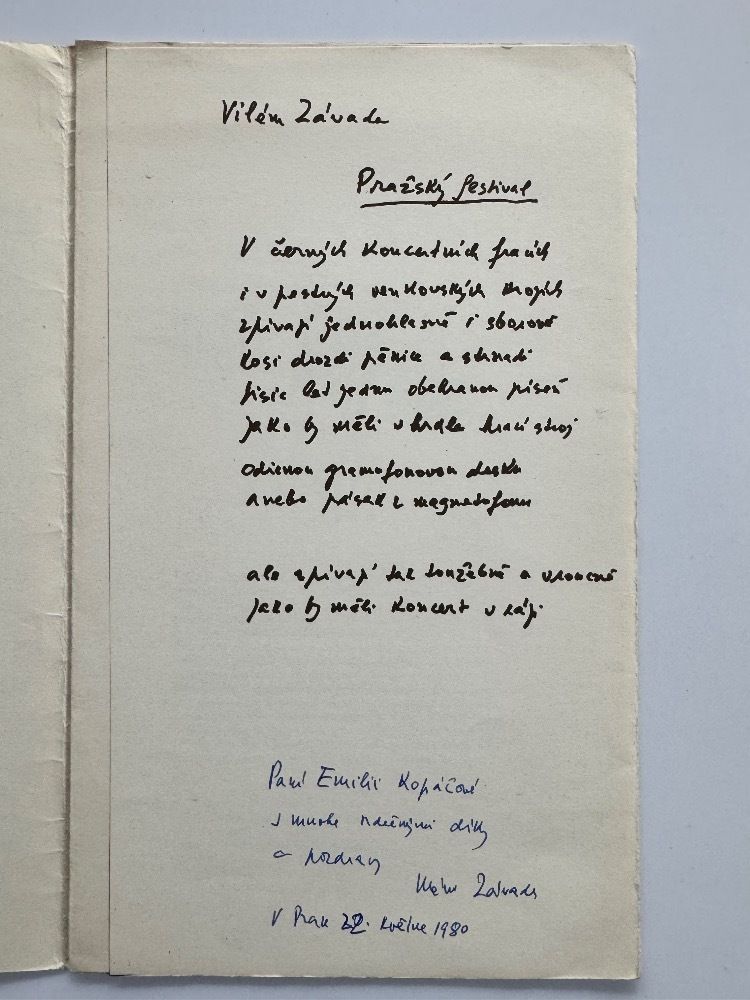 Vilém Závada
Pražský festival
V černých koncertních fracích
i v pestrých venkovských krojích
zpívají jednohlasně i sborově
kosi drozdi pěnice a strnadi
tisíc let jednu obehranou píseň
jako by měli v hrdle hrací stroj
odřenou gramofonovou desku
anebo pásek z magnetofonu
ale zpívají tak toužebně a vroucně
jako by měli koncert v ráji
Paní Emilii Kopáčové
s mnoha vděčnými díky
a pozdravy
Vilém Závada
V Praze 22. května 1980